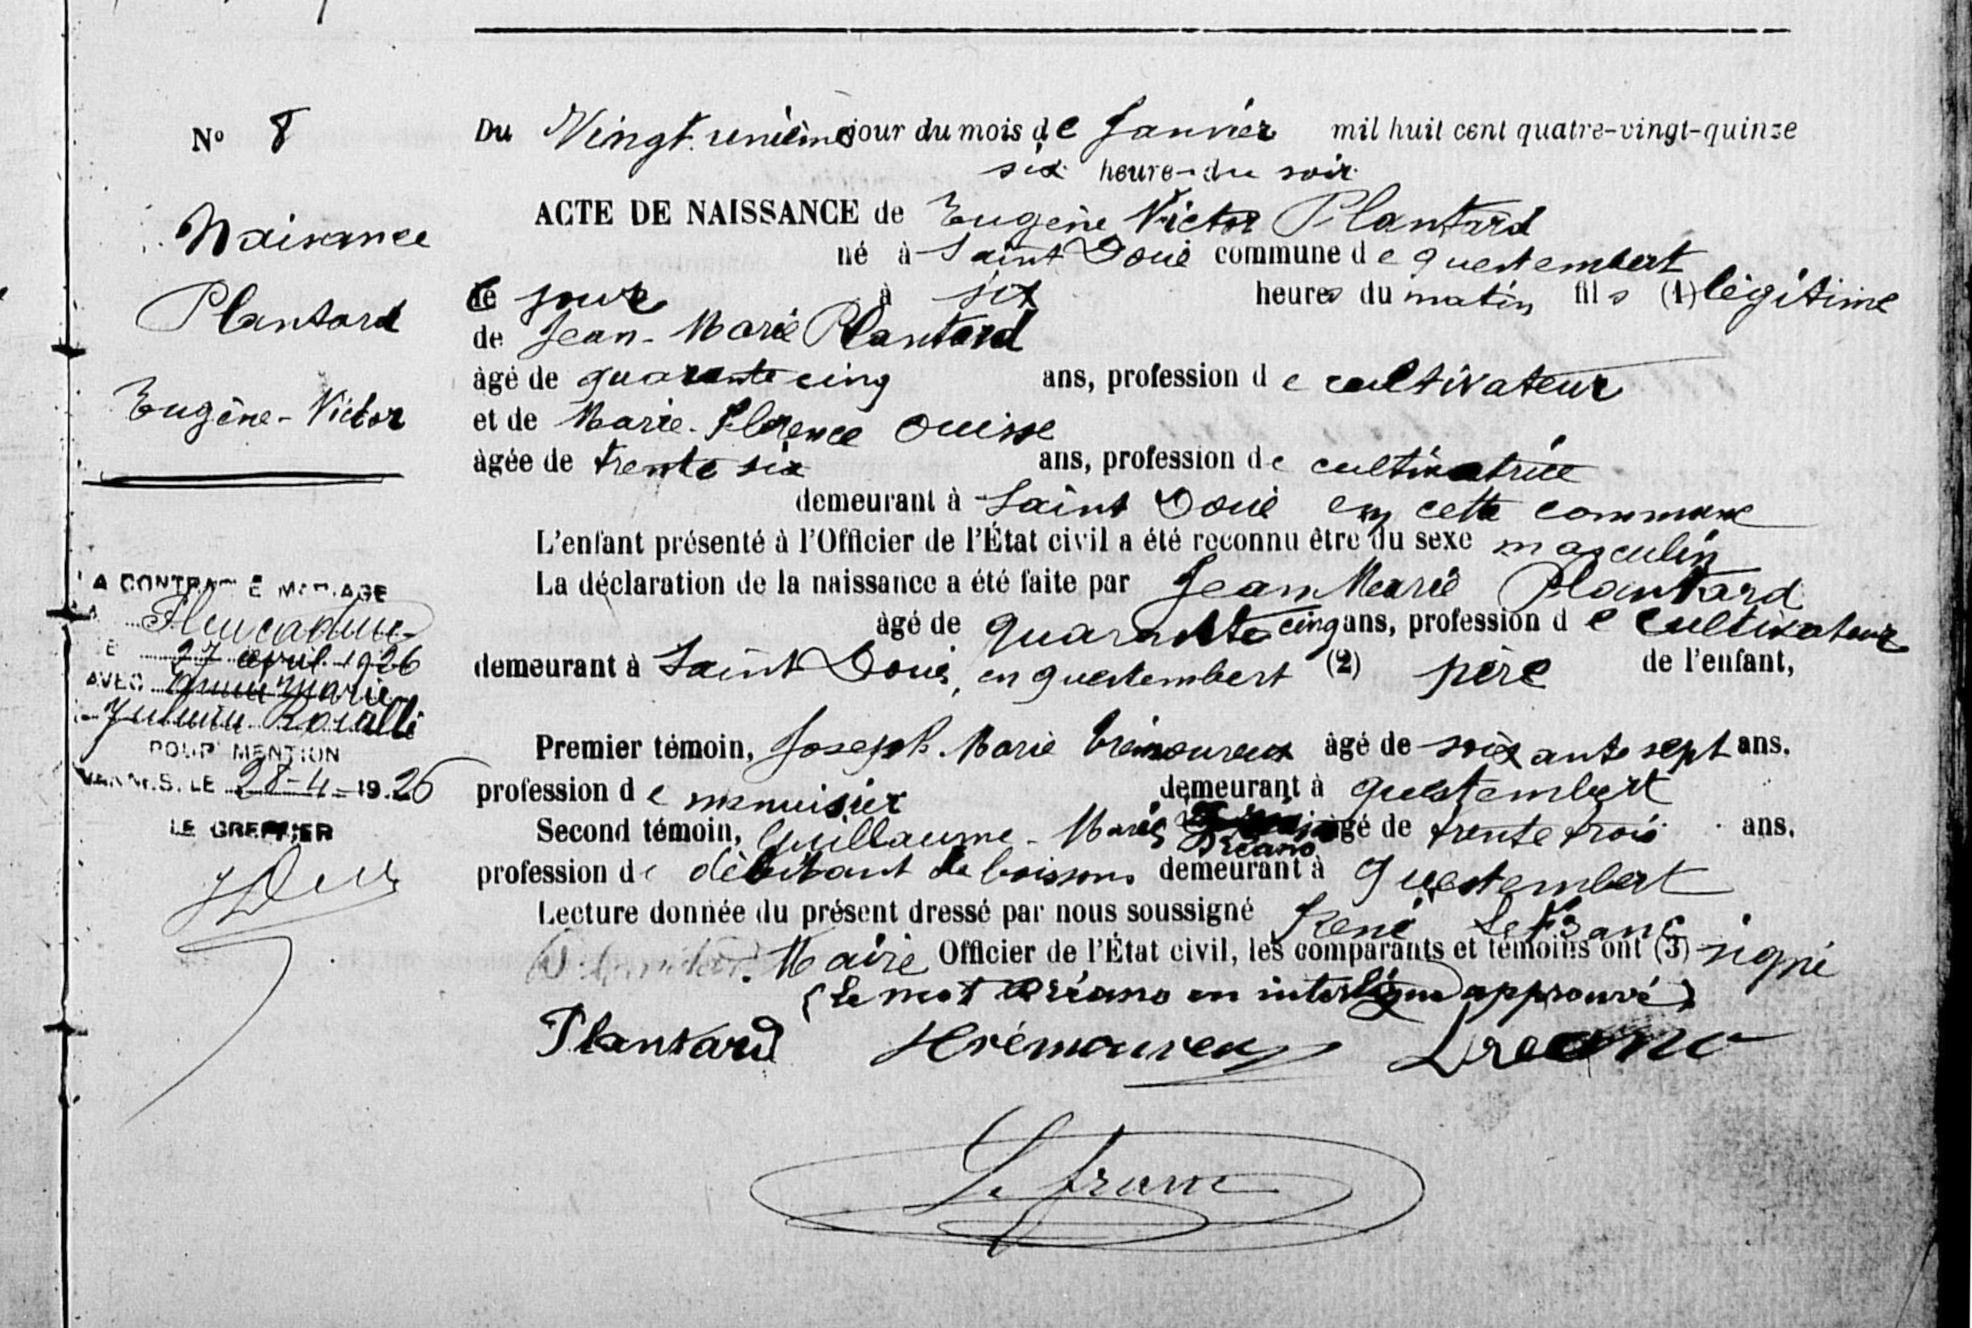 N° 8
Naissance
Plantard
Eugène-Victor
A CONTRACTÉ MARIAGE
A Pleucadeuc
LE 27 avril 1926
AVEC Anna Marie
POUR MENTION
VANNES, LE 28-4-1926
LE GREFFIER
Du Vingt unième jour du mois de Janvier mil huit cent quatre-vingt-quinze
six heures du soir
ACTE DE NAISSANCE de Eugène Victor Plantard
né à Saint Doué commune de Questembert
ce jour à six heures du matin fils (1) légitime
de Jean-Marie Plantard
âgé de quarante cinq ans, profession de cultivateur
et de Marie-Florence Ouisse
âgée de trente six ans, profession de cultivatrice
demeurant à Saint Doué en cette commune
L'enfant présenté à l'Officier de l'État civil a été reconnu être du sexe masculin
La déclaration de la naissance a été faite par Jean Marie Plantard
âgé de quarante cinq ans, profession de cultivateur
demeurant à Saint Doué, en Questembert (2) père de l'enfant,
Premier témoin, Joseph Marie Trémoureux âgé de soixante sept ans,
profession de menuisier demeurant à Questembert
Second témoin, Guillaume-Marie Dréano âgé de trente trois ans,
profession de débitant de boissons demeurant à Questembert
Lecture donnée du présent dressé par nous soussigné René Le Franc
Maire Officier de l'État civil, les comparants et témoins ont (3) signé
(Le mot Dréano en interligne approuvé)
Plantard Trémoureux Dreano
Le franc